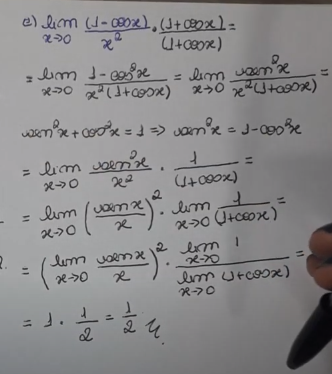 c) lim x→0 (1-cosx)/x² · (1+cosx)/(1+cosx) =
= lim x→0 1-cos²x/x²(1+cosx) = lim x→0 sen²x/x²(1+cosx) =
sen²x + cos²x = 1 => sen²x = 1-cos²x
= lim x→0 sen²x/x² · 1/(1+cosx) =
= lim x→0 (senx/x)² · lim x→0 1/(1+cosx) =
= (lim x→0 senx/x)² · lim x→0 1/lim x→0 (1+cosx) =
= 1 · 1/2 = 1/2